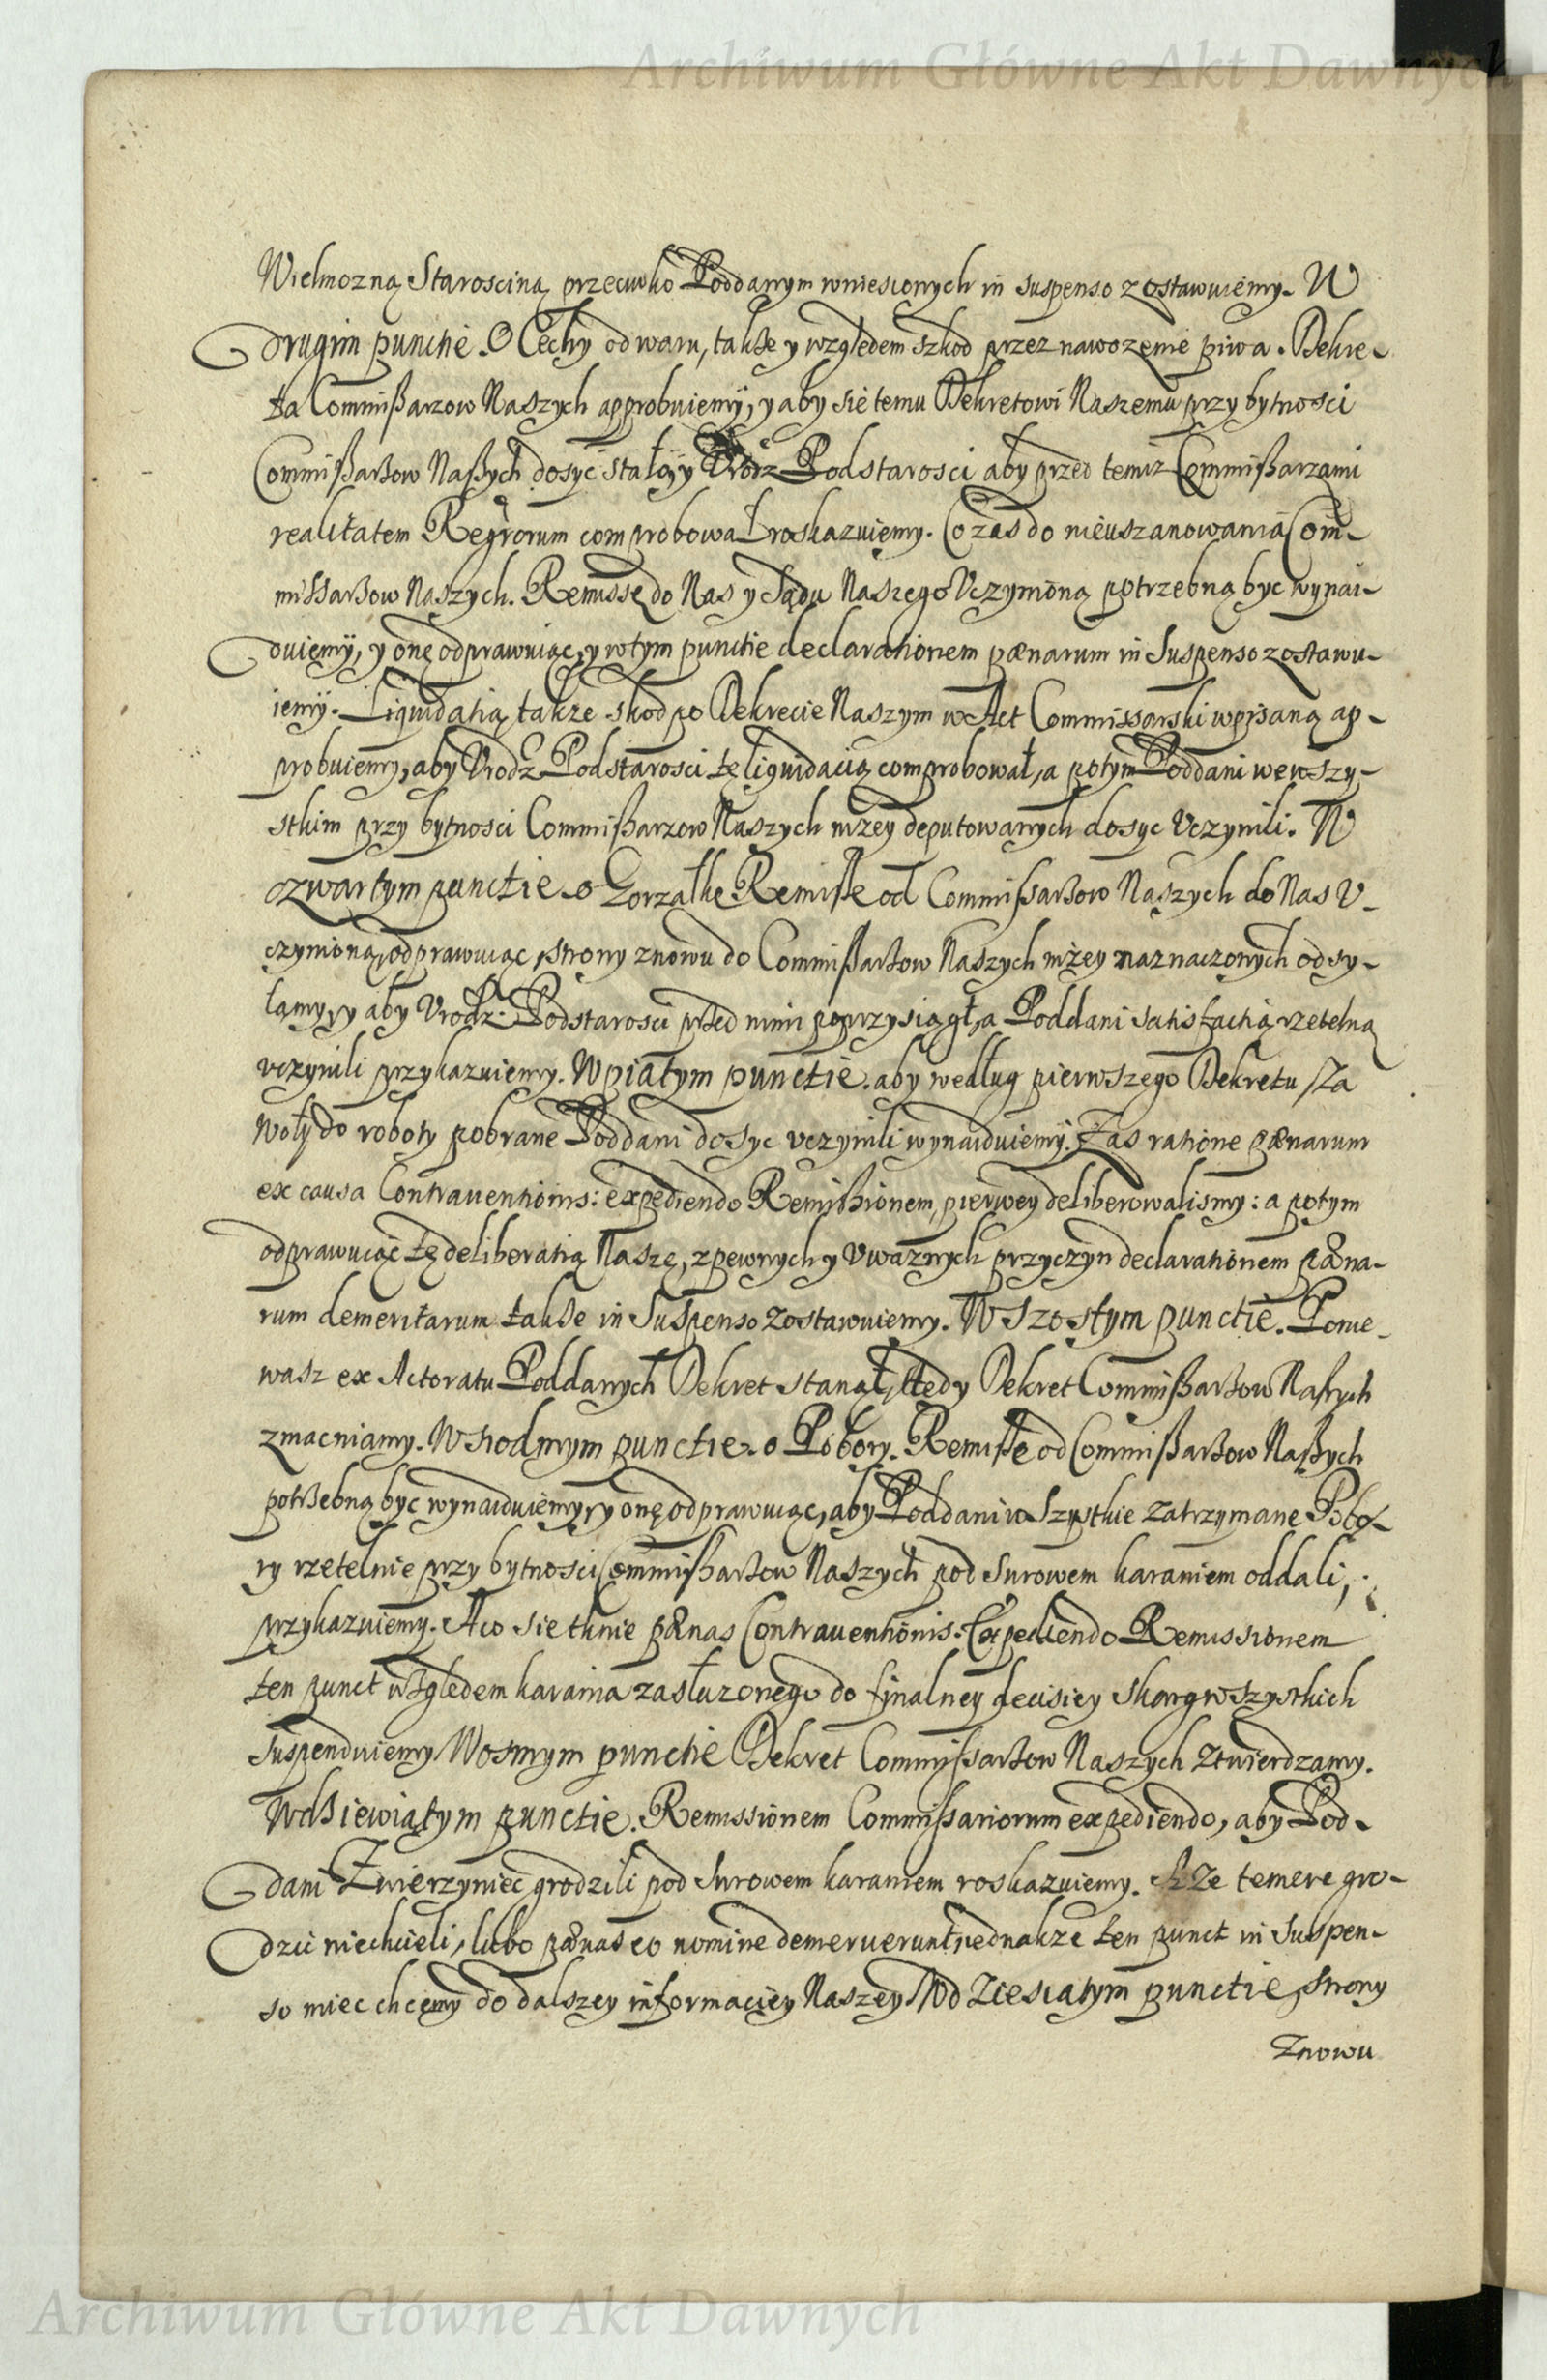 Archiwum Główne Akt Dawnych
Wielmozną Starosciną przeciwko Poddanym wniesionych in suspenso zostawuiemy. W
drugim punctie. O Cechy od waru, takße y względem szkod przez nawozenie piwa. Dekre-
ta Commißarzow Naszych approbuiemÿ, y aby sie temu Dekretowi Naszemu przy bytnosci
Commißarßow Naßych dosyć stało, y Vrodz Podstarosci aby przed temiz Commißarzami
realitatem Regrorum comprobował roskazuięmy. Co zas do nieuszanowania Com-
missarßow Naszych. Remissę do Nas y Sądu Naszego Vczynioną potrzebną byc wynai-
duięmÿ, y onę odprawuiąc, y wtym punctie declarationem pænarum in Suspenso zostawu-
iemÿ. Liquidatią takze skod po Dekrecie Naszym w Act Commissarski wpisaną ap-
probuiemy, aby Vrodz Podstarosci tę liquidacią comprobował, a potym Poddani wewszy-
stkim przy bytnosci Commißarzow Naszych niżey deputowanych dosyc Vczynili. W
czwartym punctie o Gorzałkę Remissę od Commissarßow Naszych do Nas V-
czynioną, odprawuiąc, strony znowu do Commißarßow Naszych niżey naznaczonych odsy-
łamy, y aby Vrodz: Podstarosci przed nimi poprzysiągł, a Poddani satisfactią rzetelną
vczynili przykazuiemy. W piatym punctie. aby według pierwszego Dekretu, za
woły do roboty pobrane Poddani dosyc vczynili wynaiduiemÿ. Zas ratione pænarum
ex causa Contrauentionis: expediendo Remissionem, pierwey deliberowalismy: a potym
odprawuiąc tę deliberatią Naszę, z pewnych y Vwaznych przyczyn declarationem pæna-
rum demeritarum takße in Suspenso zostawuiemy. W szostym punctie. Ponie-
wasz ex Actoratu Poddanych Dekret stanął, tedy Dekret Commißarßow Naszych
zmacniamy. W siodmym punctie. o Pobory. Remissę od Commißarßow Naßych
potrzebną byc wynaiduiemy, y onę odprawuiąc, aby Poddani wszystkie zatrzymane Pobo-
ry rzetelnie przy bytnosci Commißarßow Naszych pod surowem karaniem oddali,
przykazuiemy. A co sie tknie pænas Contrauentionis. Expediendo Remissionem
ten punct względem karania zasłuzonego do finalney decisiey skarg wszystkich
suspenduiemy. W osmym punctie Dekret Commissarßow Naszych ztwierdzamy.
W dßiewiątym punctie. Remissionem Commissariorum expediendo, aby Pod-
dani Zwierzyniec grodzili pod surowem karaniem roskazuiemy. A że temere gro-
dzic niechcieli, lubo pænas eo nomine demeruerunt, iednakze ten punct in suspen-
so miec chcemy do dalszey informaciey Naszey. W dziesiątym punctie, strony
Znowu
Archiwum Główne Akt Dawnych